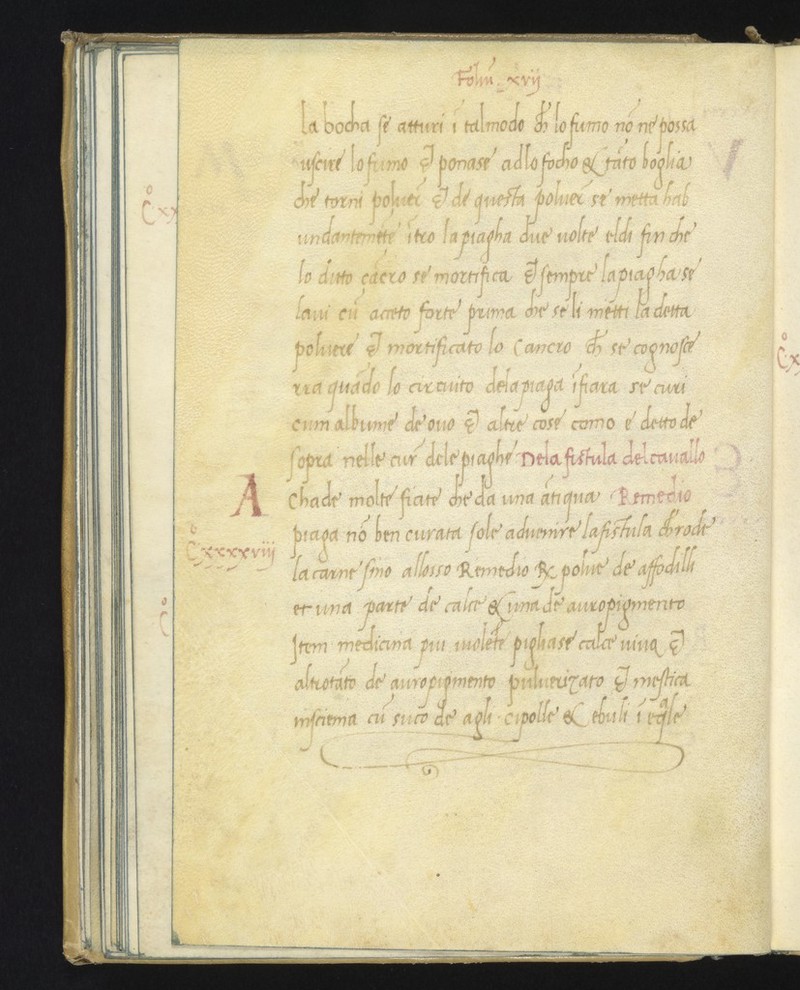 Foliū xvij
la bocha se atturi ī tal modo cħ lo fumo nō ne possa
uscire lo fumo & ponase ad lo focho & tāto boglia
che torni polver̄ & de questa polver̄ se metta hab
undantemēte ītro la piagha due uolte el di fin che
lo ditto cācro se mortifica & sempre la piagha se
laui cū aceto forte prima che se li metti la detta
poluere & mortificato lo Cancro cħ se cognosce
rra quādo lo circuito dela piaga īfiara se curi
cum albume de ouo & altre cose como e detto de
sopra nelle cur̄ dele piaghe Dela fistula del cauallo
A
Chade molte fiate che da una ātiqua Remedio
Cxxxxviij
piaga nō ben curata sole aduenire la fistula cħ rode
la carne sino allosso Remedio ℞ polue de affodilli
et una parte de calce & una de auropigmento
Item medicina piu uiolēte pigliase calce uiua &
altrotāto de auropigmento puluerizato & mestica
insciema cū suco de agli cipolle & ebuli ī